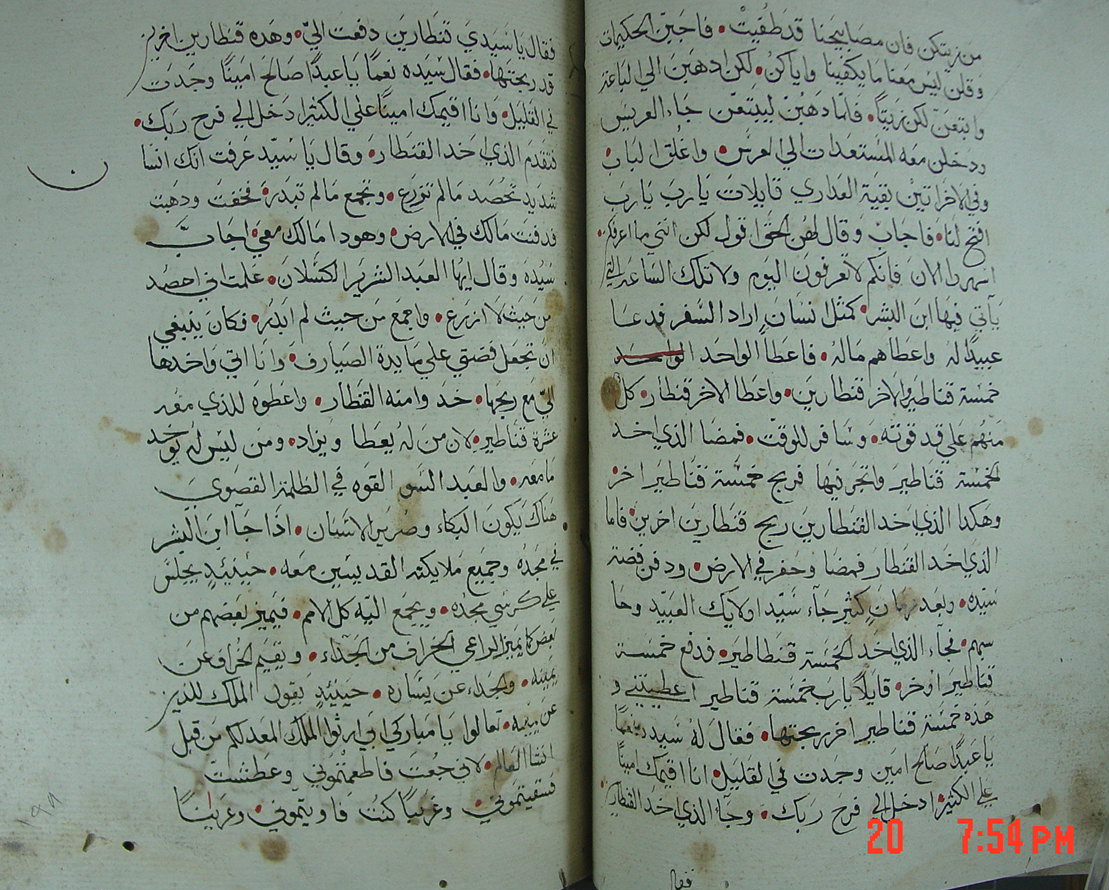 من زيتكن فان مصابيحنا قد طفيت • فاجبن الحكيمات
وقلن ليس معنا ما يكفينا واياكن • لكن ادهبن الي الباعة
وابتعن لكن زيتاً • فلما دهبن ليبتعن جاء العريس
ودخلن معه المستعدات الي العرس • واغلق الباب
وفي الاخر اتين بقية العداري قايلات يا رب يا رب
افتح لنا • فاجاب وقال لهن الحق اقول لكن انني ما اعرفكم •
اسهروا الان فانكم لا تعرفون اليوم ولا تلك الساعة التي
ياتي فيها ابن البشر • كمثل انسان اراد السفر فدعا
عبيداً له واعطاهم ماله • فاعطا الواحد الواحد
خمسة قناطير والاخر قنطارين • واعطا الاخر قنطار • كل
منهم علي قد قوته • وسافر للوقت • فمضا الذي اخد
الخمسة قناطير واتجر فيها فربح خمسة قناطير اخر
وهكدا الذي اخد القنطارين ربح قنطارين اخرين • فاما
الذي اخد القنطار فمضا وحفر في الارض • ودفن فضة
سيده • وبعد زمان كثير جاء سيد اولايك العبيد وحا
سبهم • فجاء الذي اخد الخمسة قنطاطير • فدفع خمسة
قناطير اوخر • قايلاً يا رب خمسة قناطير اعطيتني و
هده خمسة قناطير اخر ربحتها • فقال له سيده نعماً
يا عبداً صالح امين وجدت في القليل • انا اقيمك اميناً
علي الكثير • ادخل الي فرح ربك • وجا الذي اخد القنطارين
فقال
فقال يا سيدي قنطارين دفعت اليّ • وهده قنطارين اخرين
قد ربحتها • فقال سيده نعماً يا عبداً صالح اميناً وجدت
في القليل • وانا اقيمك اميناً علي الكثير ادخل الي فرح ربك •
فتقدم الذي اخد القنطار • وقال يا سيد عرفت انك انسا
شديد تحصد مالم تزرع • وتجمع مالم تبدر • فخفت ودهبت
فدفنت مالك في الارض • وهودا مالك معي • اجاب
سيده وقال ايها العبد الشرير الكسلان • علمت اني احصد
من حيث لا ازرع • واجمع من حيث لم ابدر • فكان ينبغي
ان تجعل فضتي علي مايدة الصيارف • وانا اتي واخدها
اليّ مع ربحها • خد وامنه القنطار • واعطوه للذي معه
عشرة قناطير • لان من له يعطا ويزاد • ومن ليس له يوخد
ما معه • والعبد السو القوه في الظلمة القصوي
هناك يكون البكاء وصرير الاسنان • اذا جا ابن البشر
في مجده وجميع ملايكته القديسين معه • حينيد يجلس
علي كرسي مجده • وتجمع اليه كل الامم • فيميز بعضهم من
بعض كما يميز الراعي الخراف من الجداء • ويقيم الخراف عن
يمينه • والجداء عن يساره • حينيد يقول الملك للذين
عن يمينه • تعالوا يا مباركي ابي ارثوا الملك المعد لكم من قبل
انشا العالم • لاني جعت فاطعمتموني وعطشت
فسقيتموني • وغريباً كنت فاويتموني • وعرياناً